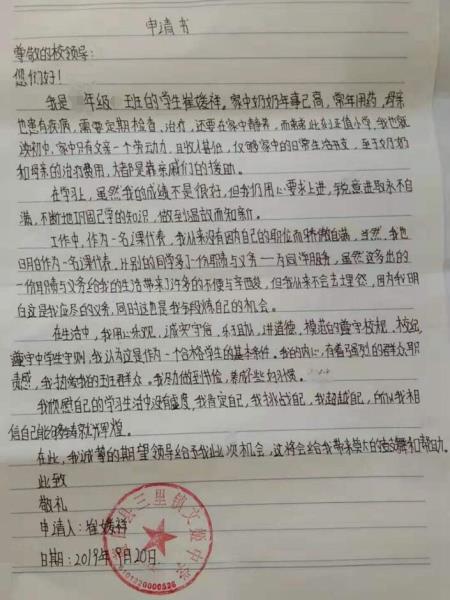 申请书
尊敬的校领导:
您们好!
我是 年级 班的学生崔媛祥。家中奶奶年事已高,常年用药,母亲
也患有疾病,需要定期检查、治疗,还要在家中静养,而弟弟此刻正值小学,我也就
读初中,家中只有父亲一个劳动力,且收入甚低,仅够家中的日常生活开支,至于奶奶
和母亲的治疗费用,大都是靠亲戚们的援助。
在学习上,虽然我的成绩不是很好,但我仍用心要求上进,锐意进取永不自
满,不断地巩固己学的知识,做到温故而知新。
工作中,作为一名课代表,我从来没有因为自己的职位而骄傲自满,当然,我也
明白作为一名课代表,比别的同学多了一份职责与义务——为同学服务,虽然这多出的
一份职责与义务给我的生活带来了许多的不便与辛酸,但我从来不会去埋怨,因为我明
白这是我应尽的义务,同时这也是我锻炼自己的机会。
在生活中,我用心乐观,诚实守信,乐于助人,讲道德,模范的遵守校规、校纪,
遵守中学生守则,我认为这是作为一个合格学生的基本条件。我的内心有着强烈的群众职
责感,我热爱我的班群众。我努力做到节俭,养成
我憎恶自己的学习生活中没有虚度,我肯定自己,我挑战自己,我超越自己,所以我相
信自己能够铸就辉煌。
在此,我诚挚的期望领导给予我此次机会,这将会给我带来莫大的鼓舞和帮助。
此致
敬礼
申请人:崔媛祥
日期:2019年9月20日.
县三里镇文 中学